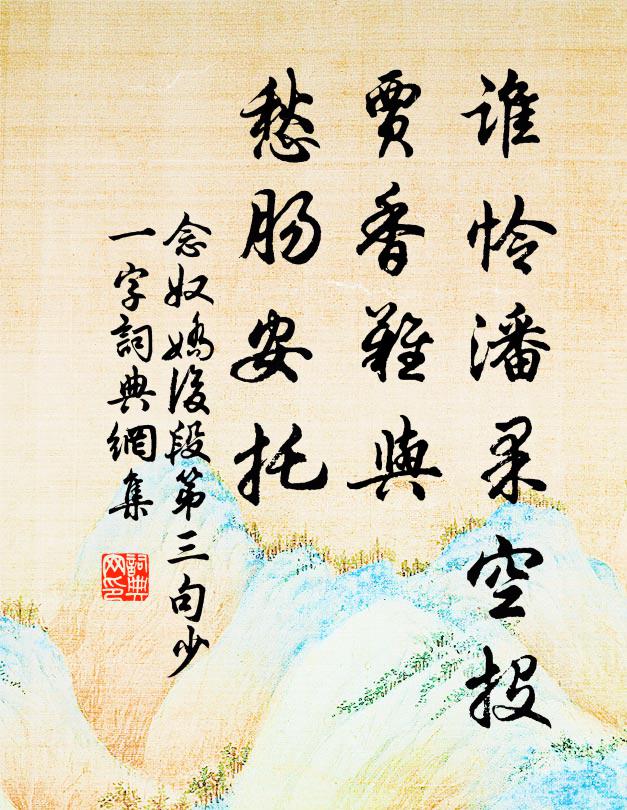 谁怜潘果空投
贾香难与
愁肠安托
念奴娇後段第三句少
一字詞典網集
詞典
文印